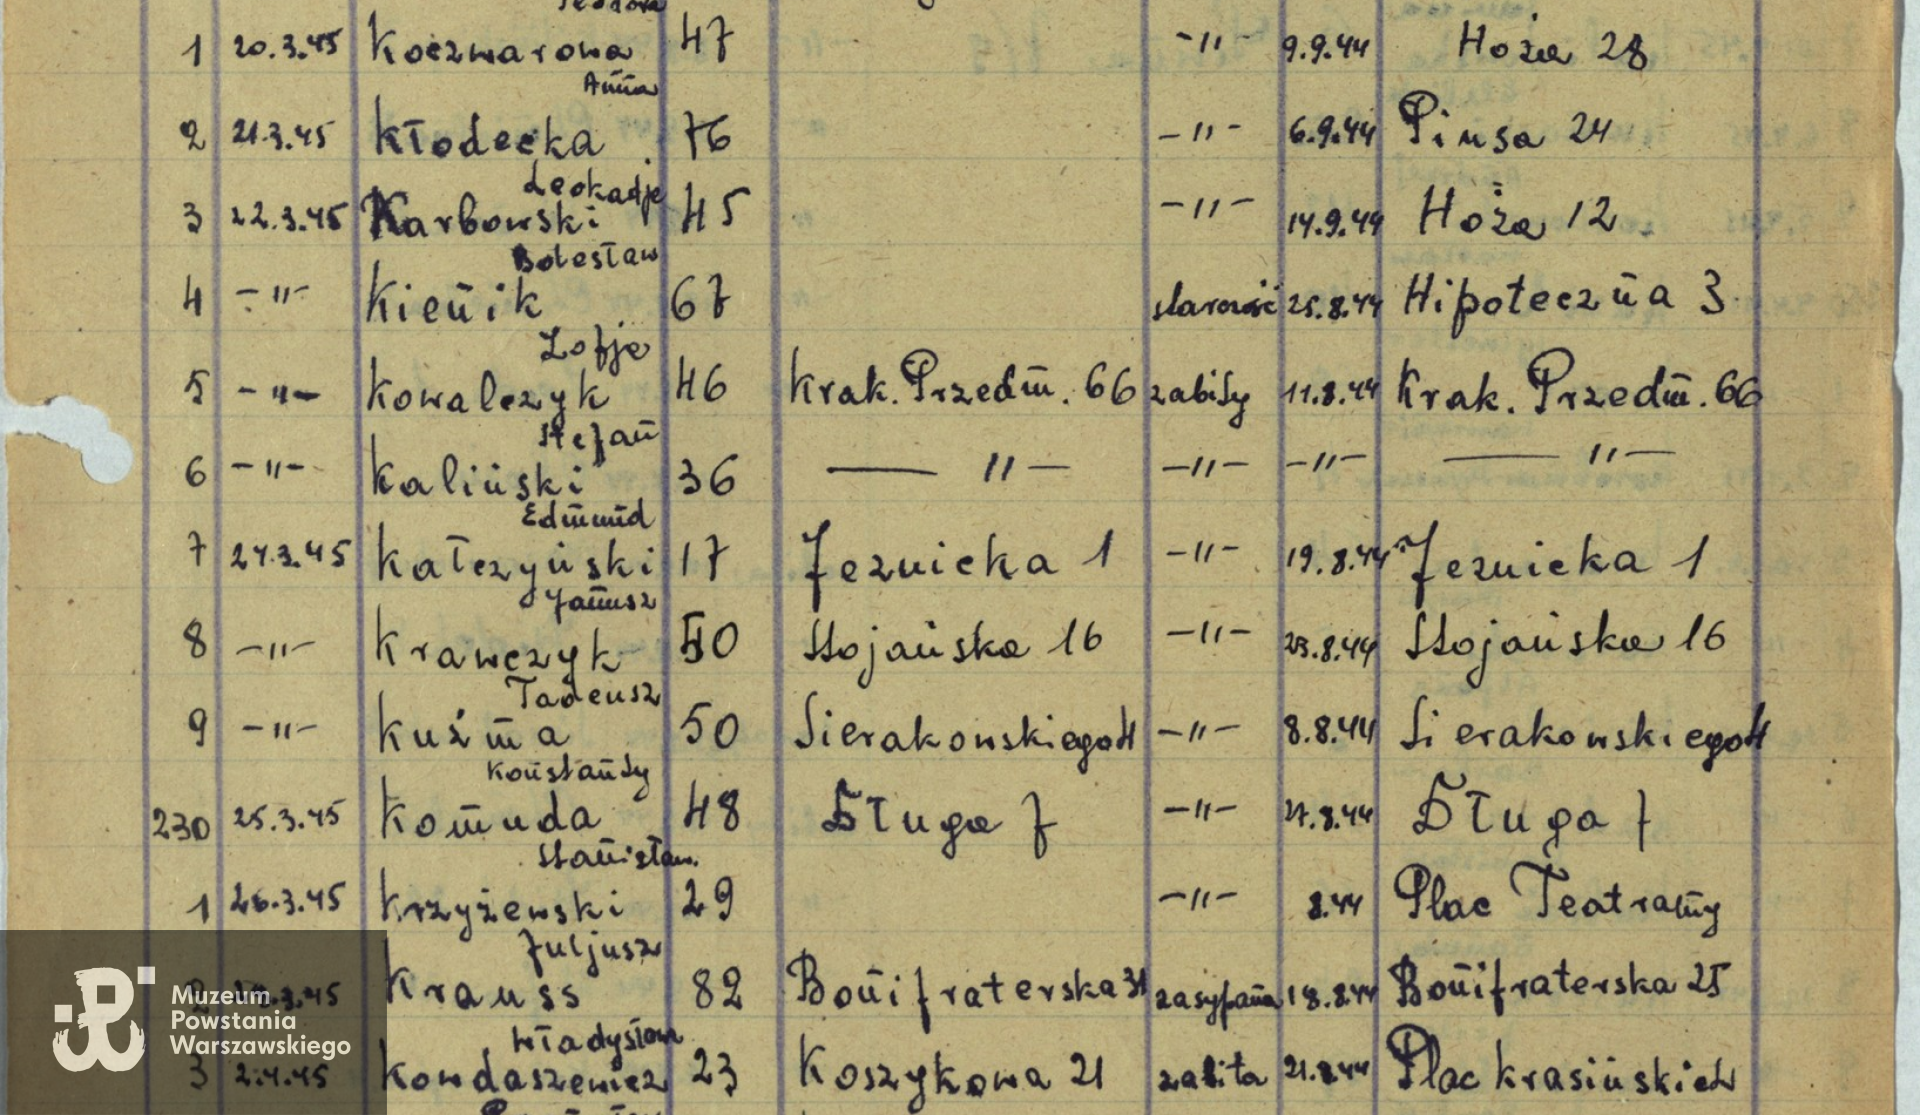 Teodora
1 20.3.45 Koczwarowa 47 -"- 9.9.44 Hoża 28
Anna
2 21.3.45 Kłodecka 76 -"- 6.9.44 Piusa 24
Leokadje
3 22.3.45 Karbowski 45 -"- 14.9.44 Hoża 12
Bolesław
4 -"- Kienik 67 starość 25.8.44 Hipoteczna 3
Zofje
5 -"- Kowalczyk 46 Krak. Przedm. 66 zabity 11.8.44 Krak. Przedm. 66
Stefan
6 -"- Kaliński 36 -"- -"- -"- -"-
Edmund
7 24.3.45 Kałczyński 17 Jezuicka 1 -"- 19.8.44 Jezuicka 1
Janusz
8 -"- Krawczyk 50 Stojańska 16 -"- 23.8.44 Stojańska 16
Tadeusz
9 -"- Kuźma 50 Sierakowskiego 4 -"- 8.8.44 Sierakowskiego 4
Konstanty
230 25.3.45 Komuda 48 Długa 7 -"- 27.8.44 Długa 7
Stanisław
1 26.3.45 Krzyżewski 29 -"- 8.44 Plac Teatralny
Juljusz
2 Krauss 82 Bonifraterska 31 zasypana 18.8.44 Bonifraterska 25
Władysława
3 2.4.45 Kondaszewicz 23 Koszykowa 21 zabita 21.8.44 Plac Krasińskich
Muzeum
Powstania
Warszawskiego